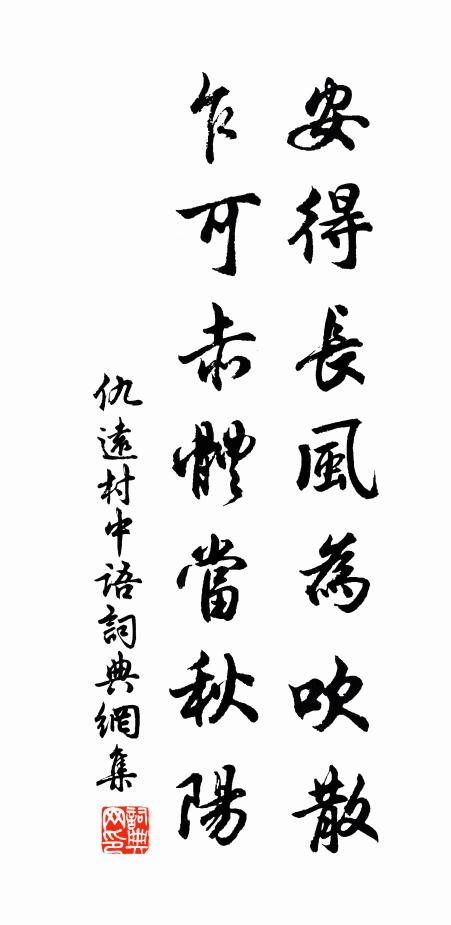 安得長風為吹散
乍可赤體當秋陽
仇遠村中語詞典網集
詞典
网印